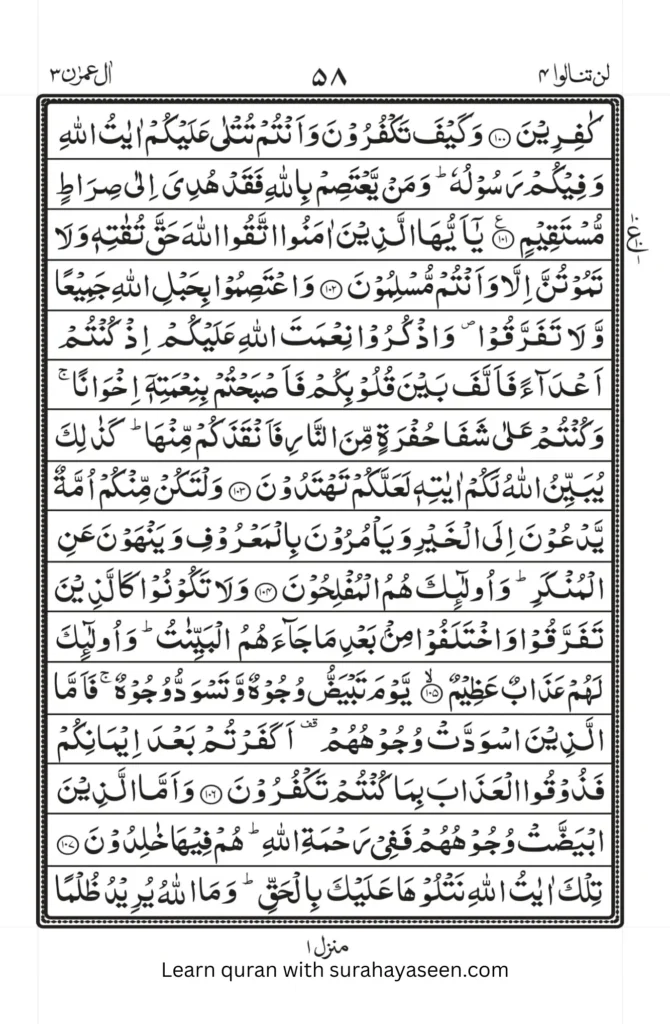 لن تنالوا ۴ ۵۸ اٰل عمرٰن ۳
كٰفِرِيْنَ ۝۱۰۰ وَكَيْفَ تَكْفُرُوْنَ وَاَنْتُمْ تُتْلٰى عَلَيْكُمْ اٰيٰتُ اللّٰهِ
وَفِيْكُمْ رَسُوْلُهٗ ؕ وَمَنْ يَّعْتَصِمْ بِاللّٰهِ فَقَدْ هُدِىَ اِلٰى صِرَاطٍ
مُّسْتَقِيْمٍ ۝۱۰۱ ع يٰۤاَيُّهَا الَّذِيْنَ اٰمَنُوا اتَّقُوا اللّٰهَ حَقَّ تُقٰتِهٖ وَلَا
تَمُوْتُنَّ اِلَّا وَاَنْتُمْ مُّسْلِمُوْنَ ۝۱۰۲ وَاعْتَصِمُوْا بِحَبْلِ اللّٰهِ جَمِيْعًا
وَّلَا تَفَرَّقُوْا ص وَاذْكُرُوْا نِعْمَتَ اللّٰهِ عَلَيْكُمْ اِذْ كُنْتُمْ
اَعْدَآءً فَاَلَّفَ بَيْنَ قُلُوْبِكُمْ فَاَصْبَحْتُمْ بِنِعْمَتِهٖۤ اِخْوَانًا ۚ
وَكُنْتُمْ عَلٰى شَفَا حُفْرَةٍ مِّنَ النَّارِ فَاَنْقَذَكُمْ مِّنْهَا ؕ كَذٰلِكَ
يُبَيِّنُ اللّٰهُ لَكُمْ اٰيٰتِهٖ لَعَلَّكُمْ تَهْتَدُوْنَ ۝۱۰۳ وَلْتَكُنْ مِّنْكُمْ اُمَّةٌ
يَّدْعُوْنَ اِلَى الْخَيْرِ وَيَاْمُرُوْنَ بِالْمَعْرُوْفِ وَيَنْهَوْنَ عَنِ
الْمُنْكَرِ ؕ وَاُولٰٓئِكَ هُمُ الْمُفْلِحُوْنَ ۝۱۰۴ وَلَا تَكُوْنُوْا كَالَّذِيْنَ
تَفَرَّقُوْا وَاخْتَلَفُوْا مِنْۢ بَعْدِ مَا جَآءَهُمُ الْبَيِّنٰتُ ؕ وَاُولٰٓئِكَ
لَهُمْ عَذَابٌ عَظِيْمٌ ۝۱۰۵ ۙ يَّوْمَ تَبْيَضُّ وُجُوْهٌ وَّتَسْوَدُّ وُجُوْهٌ ۚ فَاَمَّا
الَّذِيْنَ اسْوَدَّتْ وُجُوْهُهُمْ قف اَكَفَرْتُمْ بَعْدَ اِيْمَانِكُمْ
فَذُوْقُوا الْعَذَابَ بِمَا كُنْتُمْ تَكْفُرُوْنَ ۝۱۰۶ وَاَمَّا الَّذِيْنَ
ابْيَضَّتْ وُجُوْهُهُمْ فَفِىْ رَحْمَةِ اللّٰهِ ؕ هُمْ فِيْهَا خٰلِدُوْنَ ۝۱۰۷
تِلْكَ اٰيٰتُ اللّٰهِ نَتْلُوْهَا عَلَيْكَ بِالْحَقِّ ؕ وَمَا اللّٰهُ يُرِيْدُ ظُلْمًا
منزل ۱
Learn quran with surahayaseen.com